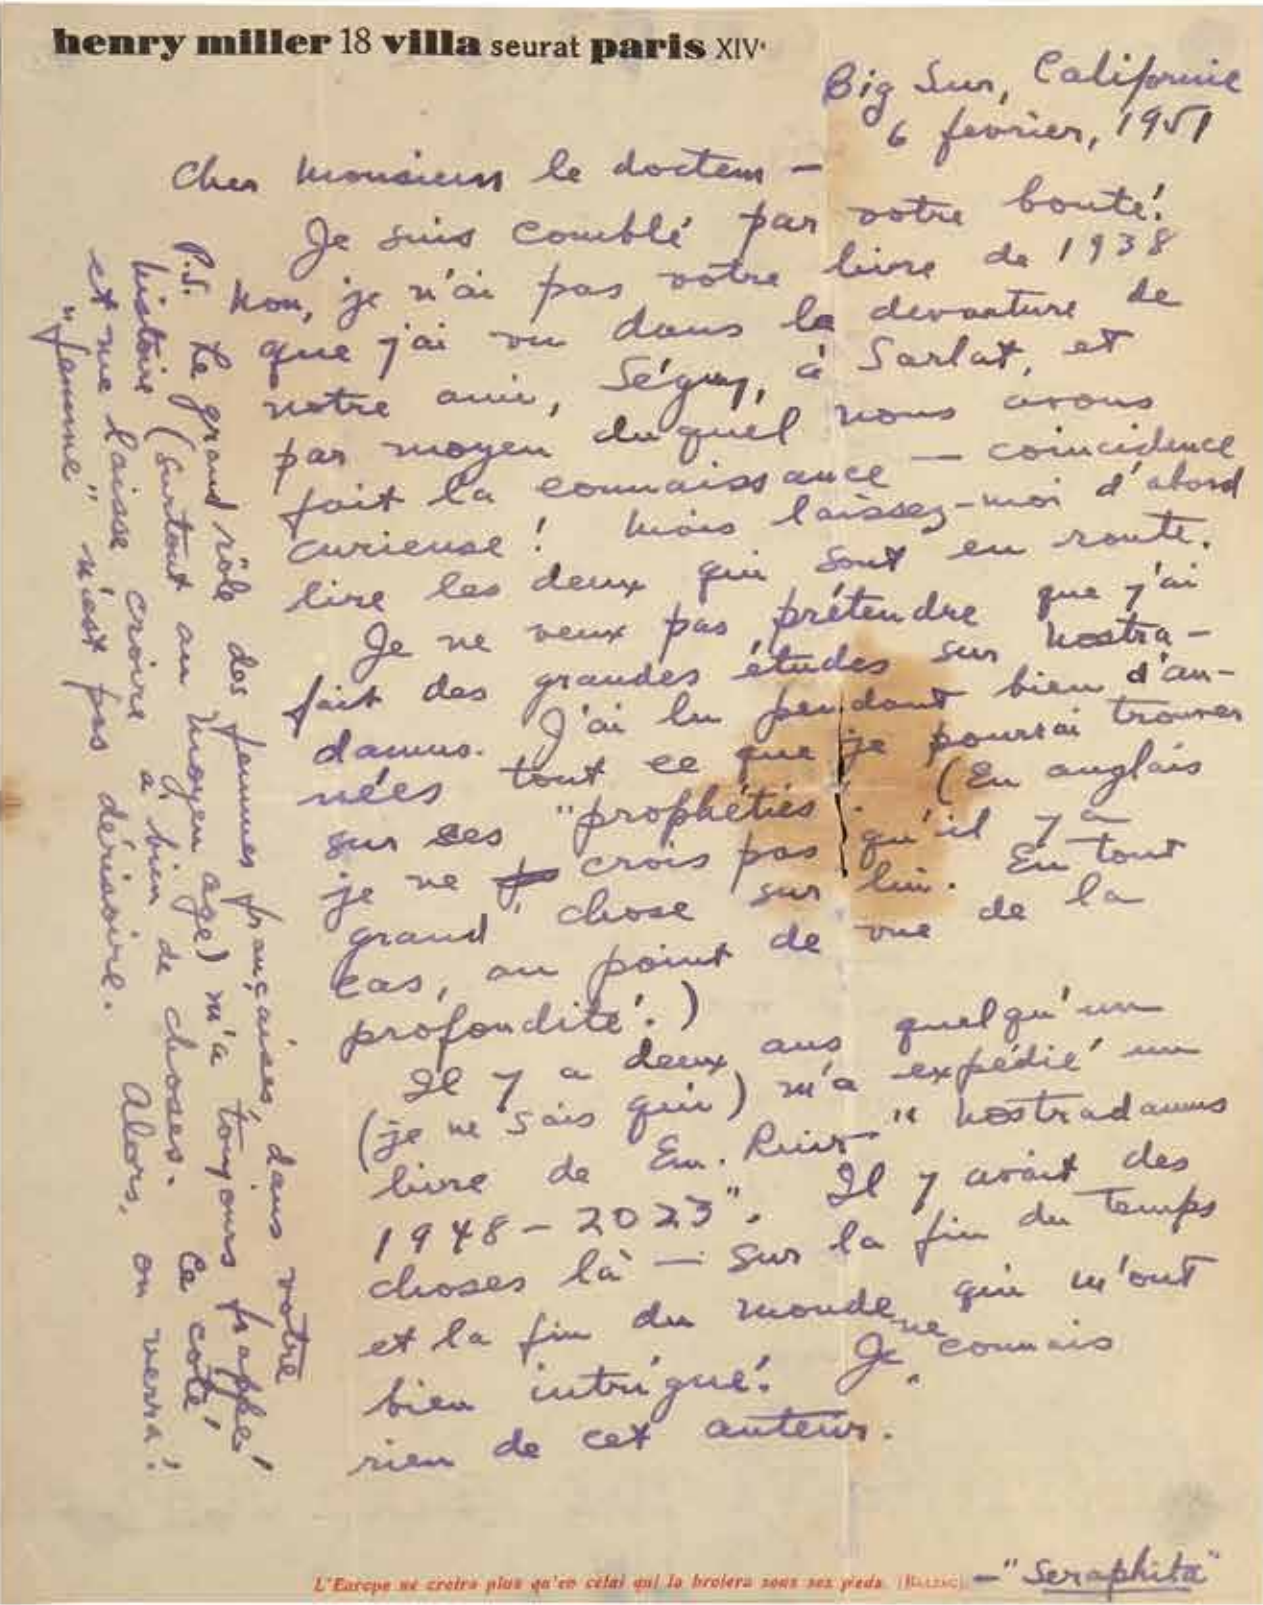 henry miller 18 villa seurat paris XIVe
Big Sur, Californie
6 fevrier, 1951
Cher Monsieur le docteur —
Je suis comblé par votre bonté!
Non, je n'ai pas votre livre de 1938
que j'ai vu dans la devanture de
notre ami, Séguy, à Sarlat, et
par moyen duquel nous avons
fait la connaissance — coincidence
curieuse! Mais laissez-moi d'abord
lire les deux qui sont en route.
Je ne veux pas prétendre que j'ai
fait des grandes études sur Nostra-
damus. J'ai lu pendant bien d'an-
nées tout ce que je pourrai trouver
sur ses "prophéties". (En anglais
je ne crois pas qu'il y a
grand' chose sur lui. En tout
cas, au point de vue de la
profondité.)
Il y a deux ans quelqu'un
(je ne sais qui) m'a expédié un
livre de Em. Ruir "Nostradamus
1948-2023". Il y avait des
choses là — sur la fin du temps
et la fin du monde qui m'ont
bien intrigué. Je ne connais
rien de cet auteur.
P.S. Le grand rôle des femmes françaises, dans votre
histoire (surtout au moyen age) m'a toujours frappé!
et me laisse croire à bien de choses. Ce coté
"femme" n'est pas dérisoire. Alors, on verra!
L'Europe ne croira plus qu'en celui qui la broiera sous ses pieds. (BALZAC) — "Seraphita"